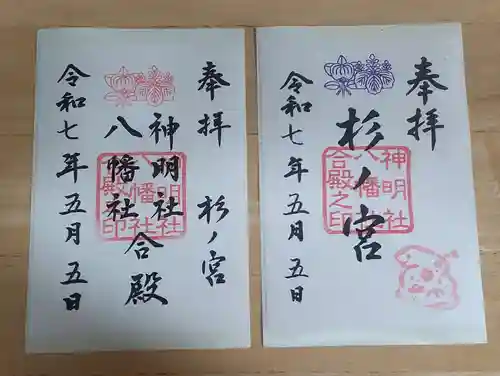 奉拝
杉ノ宮
神明社
八幡社
合殿
令和七年五月五日
神明社
八幡社
合殿印
奉拝
杉ノ宮
令和七年五月五日
神明社
八幡
合殿之印